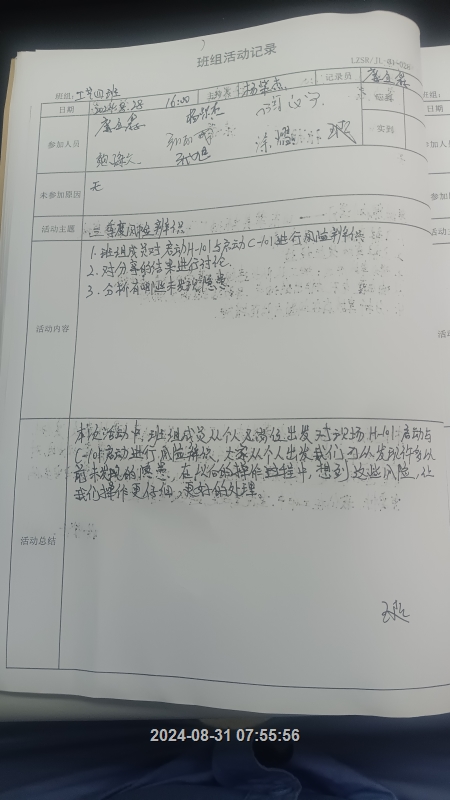 班组活动记录
LZSR/JL-01-026
班组：工艺四班
日期 2024.8.28 16:00 主持人 杨荣杰 记录员
参加人员
应到
实到
未参加原因 无
活动主题 三季度风险辨识
活动内容
1. 班组成员对启动H-101与启动C-101进行风险辨识
2. 对分享的结果进行讨论.
3. 分析有哪些未发现隐患.
活动总结
本次活动中，班组成员从个人及岗位出发，对现场H-101启动与
C-101启动进行风险辨识，大家从个人出发我们可以发现许多以
前未发现的隐患，在以后的操作过程中，想到这些风险，让
我们操作更仔细，更好的处理。
班组：
日期
2024-08-31 07:55:56